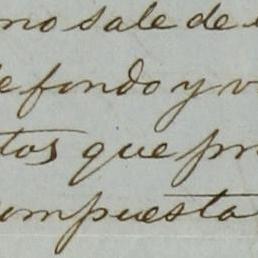 no sale de
de fondo y v
tos que pr
ompuesta